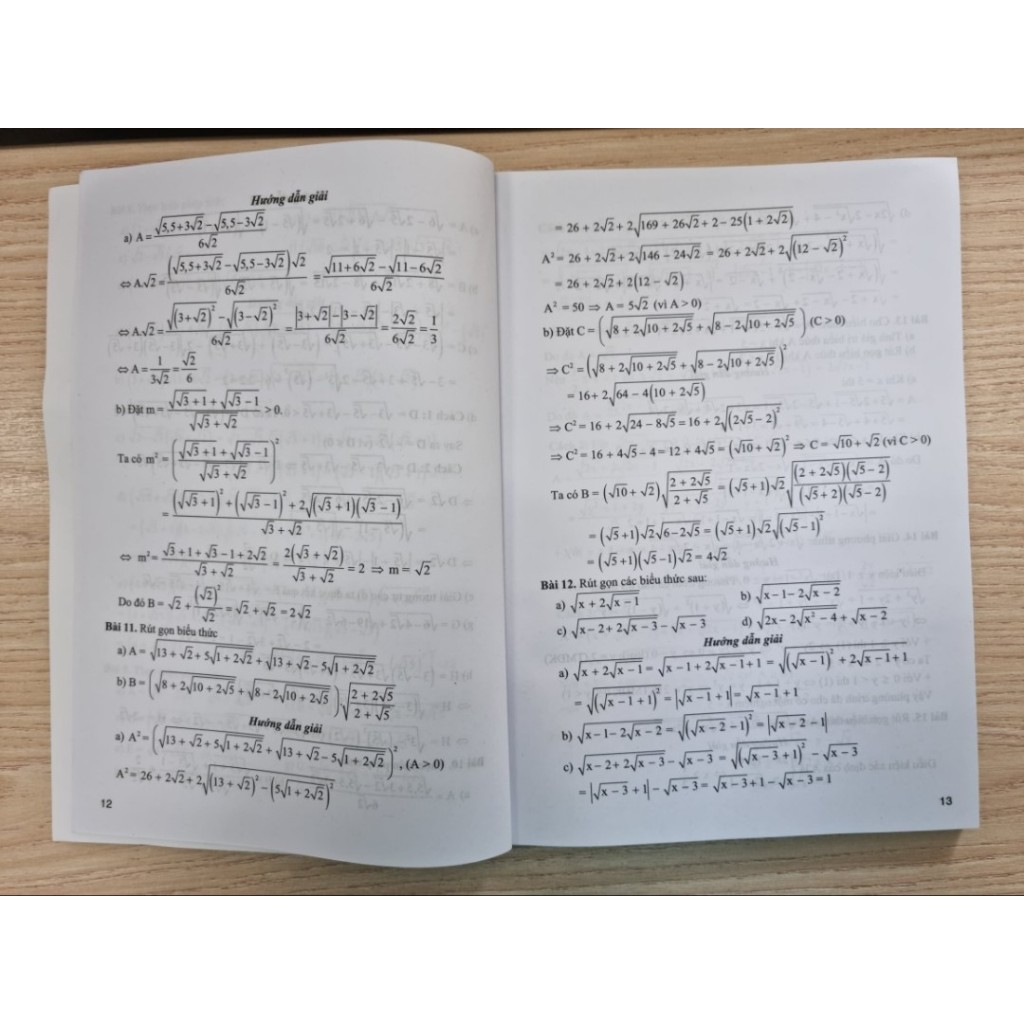 Hướng dẫn giải
a) A = (√(5,5+3√2) − √(5,5−3√2)) / (6√2)
⇔ A.√2 = ((√(5,5+3√2) − √(5,5−3√2))√2) / (6√2) = (√(11+6√2) − √(11−6√2)) / (6√2)
⇔ A.√2 = (√((3+√2)²) − √((3−√2)²)) / (6√2) = (|3+√2|−|3−√2|) / (6√2) = (2√2)/(6√2) = 1/3
⇔ A = 1/(3√2) = √2/6
b) Đặt m = (√(√3+1) + √(√3−1)) / √(√3+√2) > 0.
Ta có m² = ((√(√3+1) + √(√3−1)) / √(√3+√2))²
= ((√(√3+1))² + (√(√3−1))² + 2√((√3+1)(√3−1))) / (√3+√2)
⇔ m² = (√3+1+√3−1+2√2) / (√3+√2) = 2(√3+√2) / (√3+√2) = 2 ⇒ m = √2
Do đó B = √2 + (√2)²/√2 = √2 + √2 = 2√2
Bài 11. Rút gọn biểu thức
a) A = √(13+√2+5√(1+2√2)) + √(13+√2−5√(1+2√2))
b) B = (√(8+2√(10+2√5)) + √(8−2√(10+2√5))).√((2+2√5)/(2+√5))
Hướng dẫn giải
a) A² = (√(13+√2+5√(1+2√2)) + √(13+√2−5√(1+2√2)))², (A > 0)
A² = 26 + 2√2 + 2√((13+√2)² − (5√(1+2√2))²)
12
= 26 + 2√2 + 2√(169 + 26√2 + 2 − 25(1+2√2))
A² = 26 + 2√2 + 2√(146 − 24√2) = 26 + 2√2 + 2√((12−√2)²)
= 26 + 2√2 + 2(12 − √2)
A² = 50 ⇒ A = 5√2 (vì A > 0)
b) Đặt C = (√(8+2√(10+2√5)) + √(8−2√(10+2√5))) (C > 0)
⇒ C² = (√(8+2√(10+2√5)) + √(8−2√(10+2√5)))²
= 16 + 2√(64 − 4(10+2√5))
⇒ C² = 16 + 2√(24 − 8√5) = 16 + 2√((2√5−2)²)
⇒ C² = 16 + 4√5 − 4 = 12 + 4√5 = (√10+√2)² ⇒ C = √10 + √2 (vì C > 0)
Ta có B = (√10+√2)√((2+2√5)/(2+√5)) = (√5+1)√2√(((2+2√5)(√5−2))/((√5+2)(√5−2)))
= (√5+1)√2√(6−2√5) = (√5+1)√2√((√5−1)²)
= (√5+1)(√5−1)√2 = 4√2
Bài 12. Rút gọn các biểu thức sau:
a) √(x+2√(x−1)) b) √(x−1−2√(x−2))
c) √(x−2+2√(x−3)) − √(x−3) d) √(2x−2√(x²−4)) + √(x−2)
Hướng dẫn giải
a) √(x+2√(x−1)) = √(x−1+2√(x−1)+1) = √((√(x−1))²+2√(x−1)+1)
= √((√(x−1)+1)²) = |√(x−1)+1| = √(x−1)+1
b) √(x−1−2√(x−2)) = √((√(x−2)−1)²) = |√(x−2)−1|
c) √(x−2+2√(x−3)) − √(x−3) = √((√(x−3)+1)²) − √(x−3)
= |√(x−3)+1| − √(x−3) = √(x−3)+1−√(x−3) = 1
13